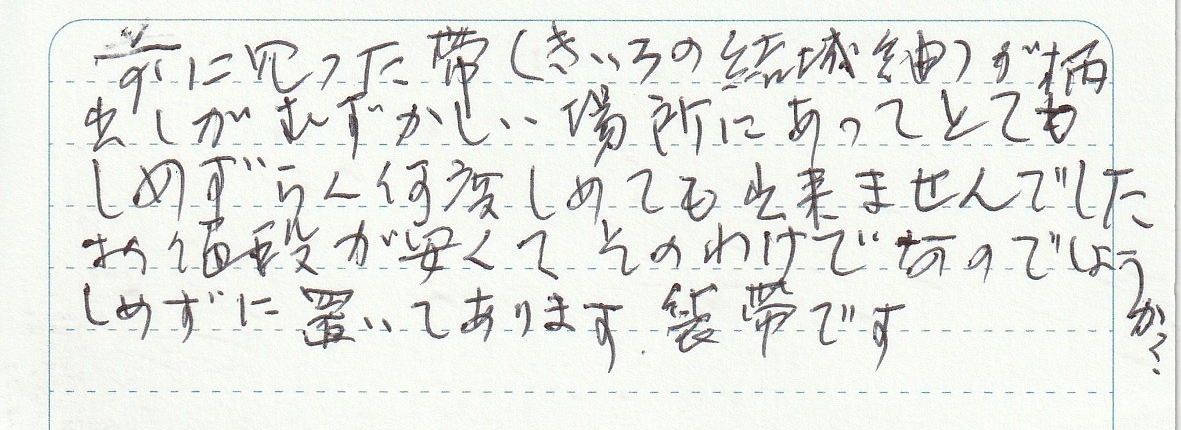 前に買った帯(きいろの結城紬)が柄
出しがむずかしい場所にあってとても
しめずらく何度しめても出来ませんでした
お値段が安くてそのわけでなのでしょうか?
しめずに置いてあります.袋帯です